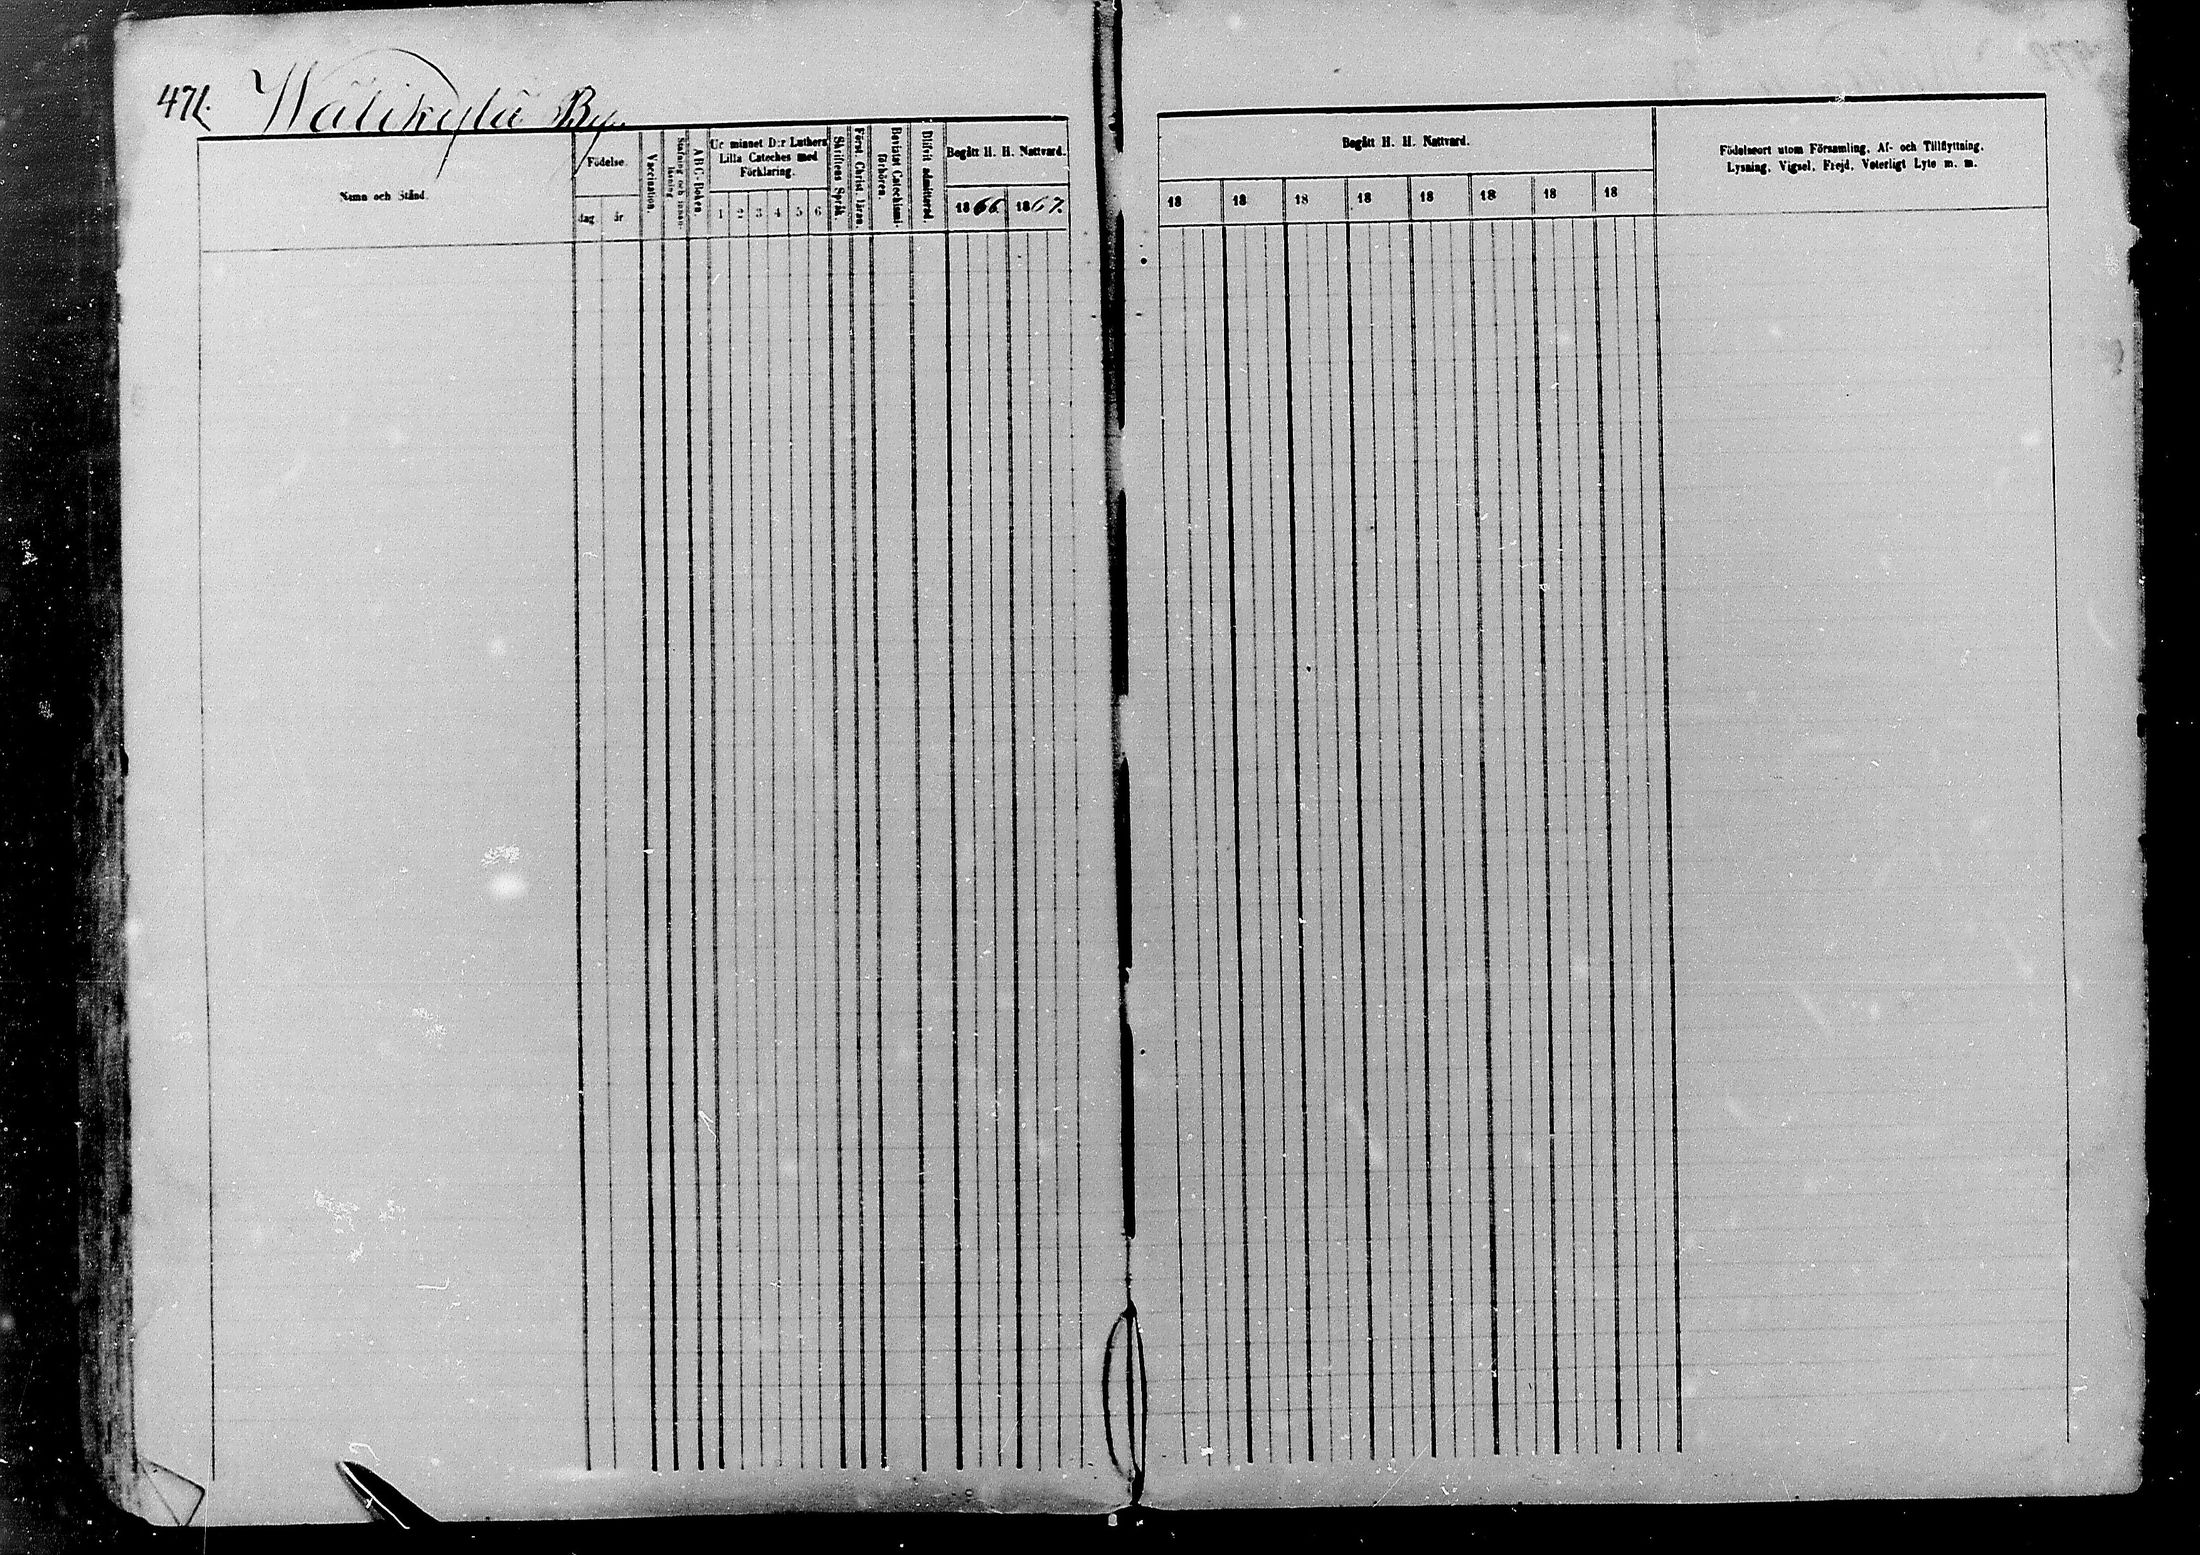 471. Wälikylä By.
Namn och Stånd.
Födelse.
dag
år
Vaccination.
Stafning och innanläsning
ABC-Boken.
Ur minnet D:r Luthers
Lilla Cateches med
Förklaring.
1 2 3 4 5 6
Skriftens Språk
Först. Christ. läran.
Bevistat Catechismi-
förhören.
Blifvit admitterad.
Begått H. H. Nattvard.
1866 1867.
Begått H. H. Nattvard.
18 18 18 18 18 18 18 18
Födelseort utom Församling, Af- och Tillflyttning,
Lysning, Vigsel, Frejd, Veterligt Lyte m. m.